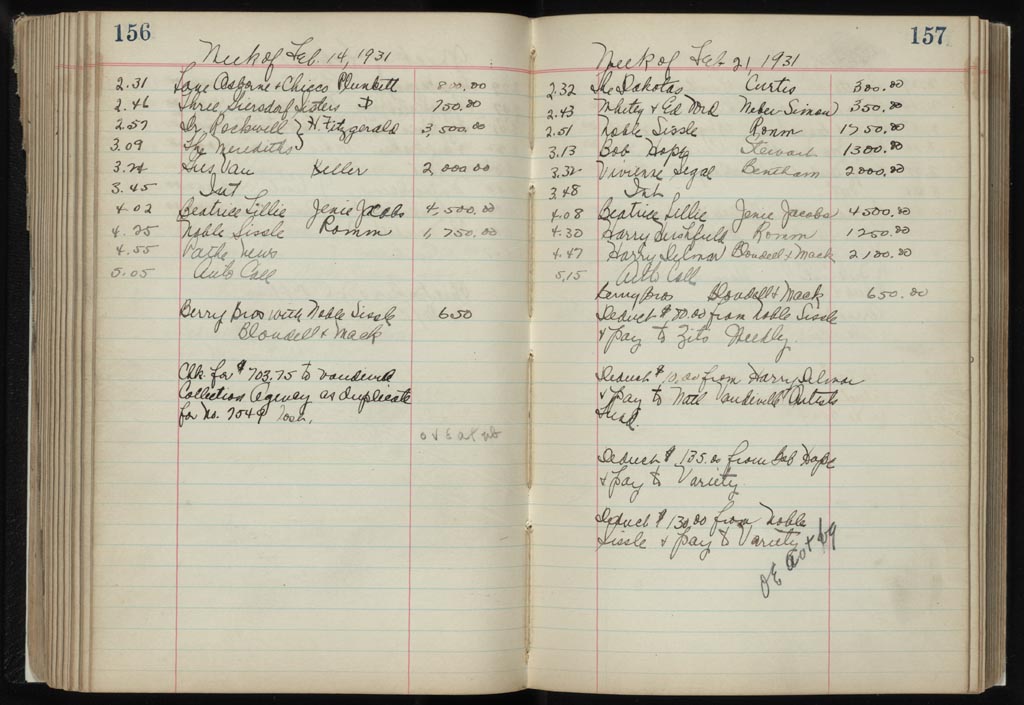 156
Week of Feb. 14, 1931
2.31 Faye Osborne + Chicco Plunkett 800.00
2.46 Three Giersdorf Sisters 750.00
2.57 Dr. Rockwell } H. Fitzgerald 3,500.00
3.09 The Merediths }
Gus Van Keller 2 000 00
3.45 Int
4.02 Beatrice Lillie Jenie Jacobs 4,500.00
4.25 Noble Sissle Romm 1,750.00
4.55 Pathe News
5.05 Auto Call
Berry Bros with Noble Sissle 650
Blondell + Mack
Chk. for $703.75 to Vaudeville
Collection Agency as duplicate
for No. 7049
157
Week of Feb 21, 1931
2.32 The Dakotas Curtis 500.00
2.43 Whitey + Ed Ford Weber-Simon 350.00
2.51 Noble Sissle Romm 1750.00
3.13 Bob Hope Stewart 1300.00
3.32 Vivienne Segal Bentham 2000.00
3.48 Int.
4.08 Beatrice Lillie Jenie Jacobs 4500.00
4.30 Harry Hirshfield Romm 1250.00
4.47 Harry Delmar Blondell + Mack 2100.00
5.15 Auto Call
Berry Bros Blondell + Mack 650.00
Deduct $70.00 from Noble Sissle
+ pay to Zits Weekly.
Deduct $10.00 from Harry Delmar
+ pay to Natl Vaudeville Artists
Fund.
Deduct $135.00 from Bob Hope
+ pay to Variety
Deduct $130.00 from Noble
Sissle + pay to Variety